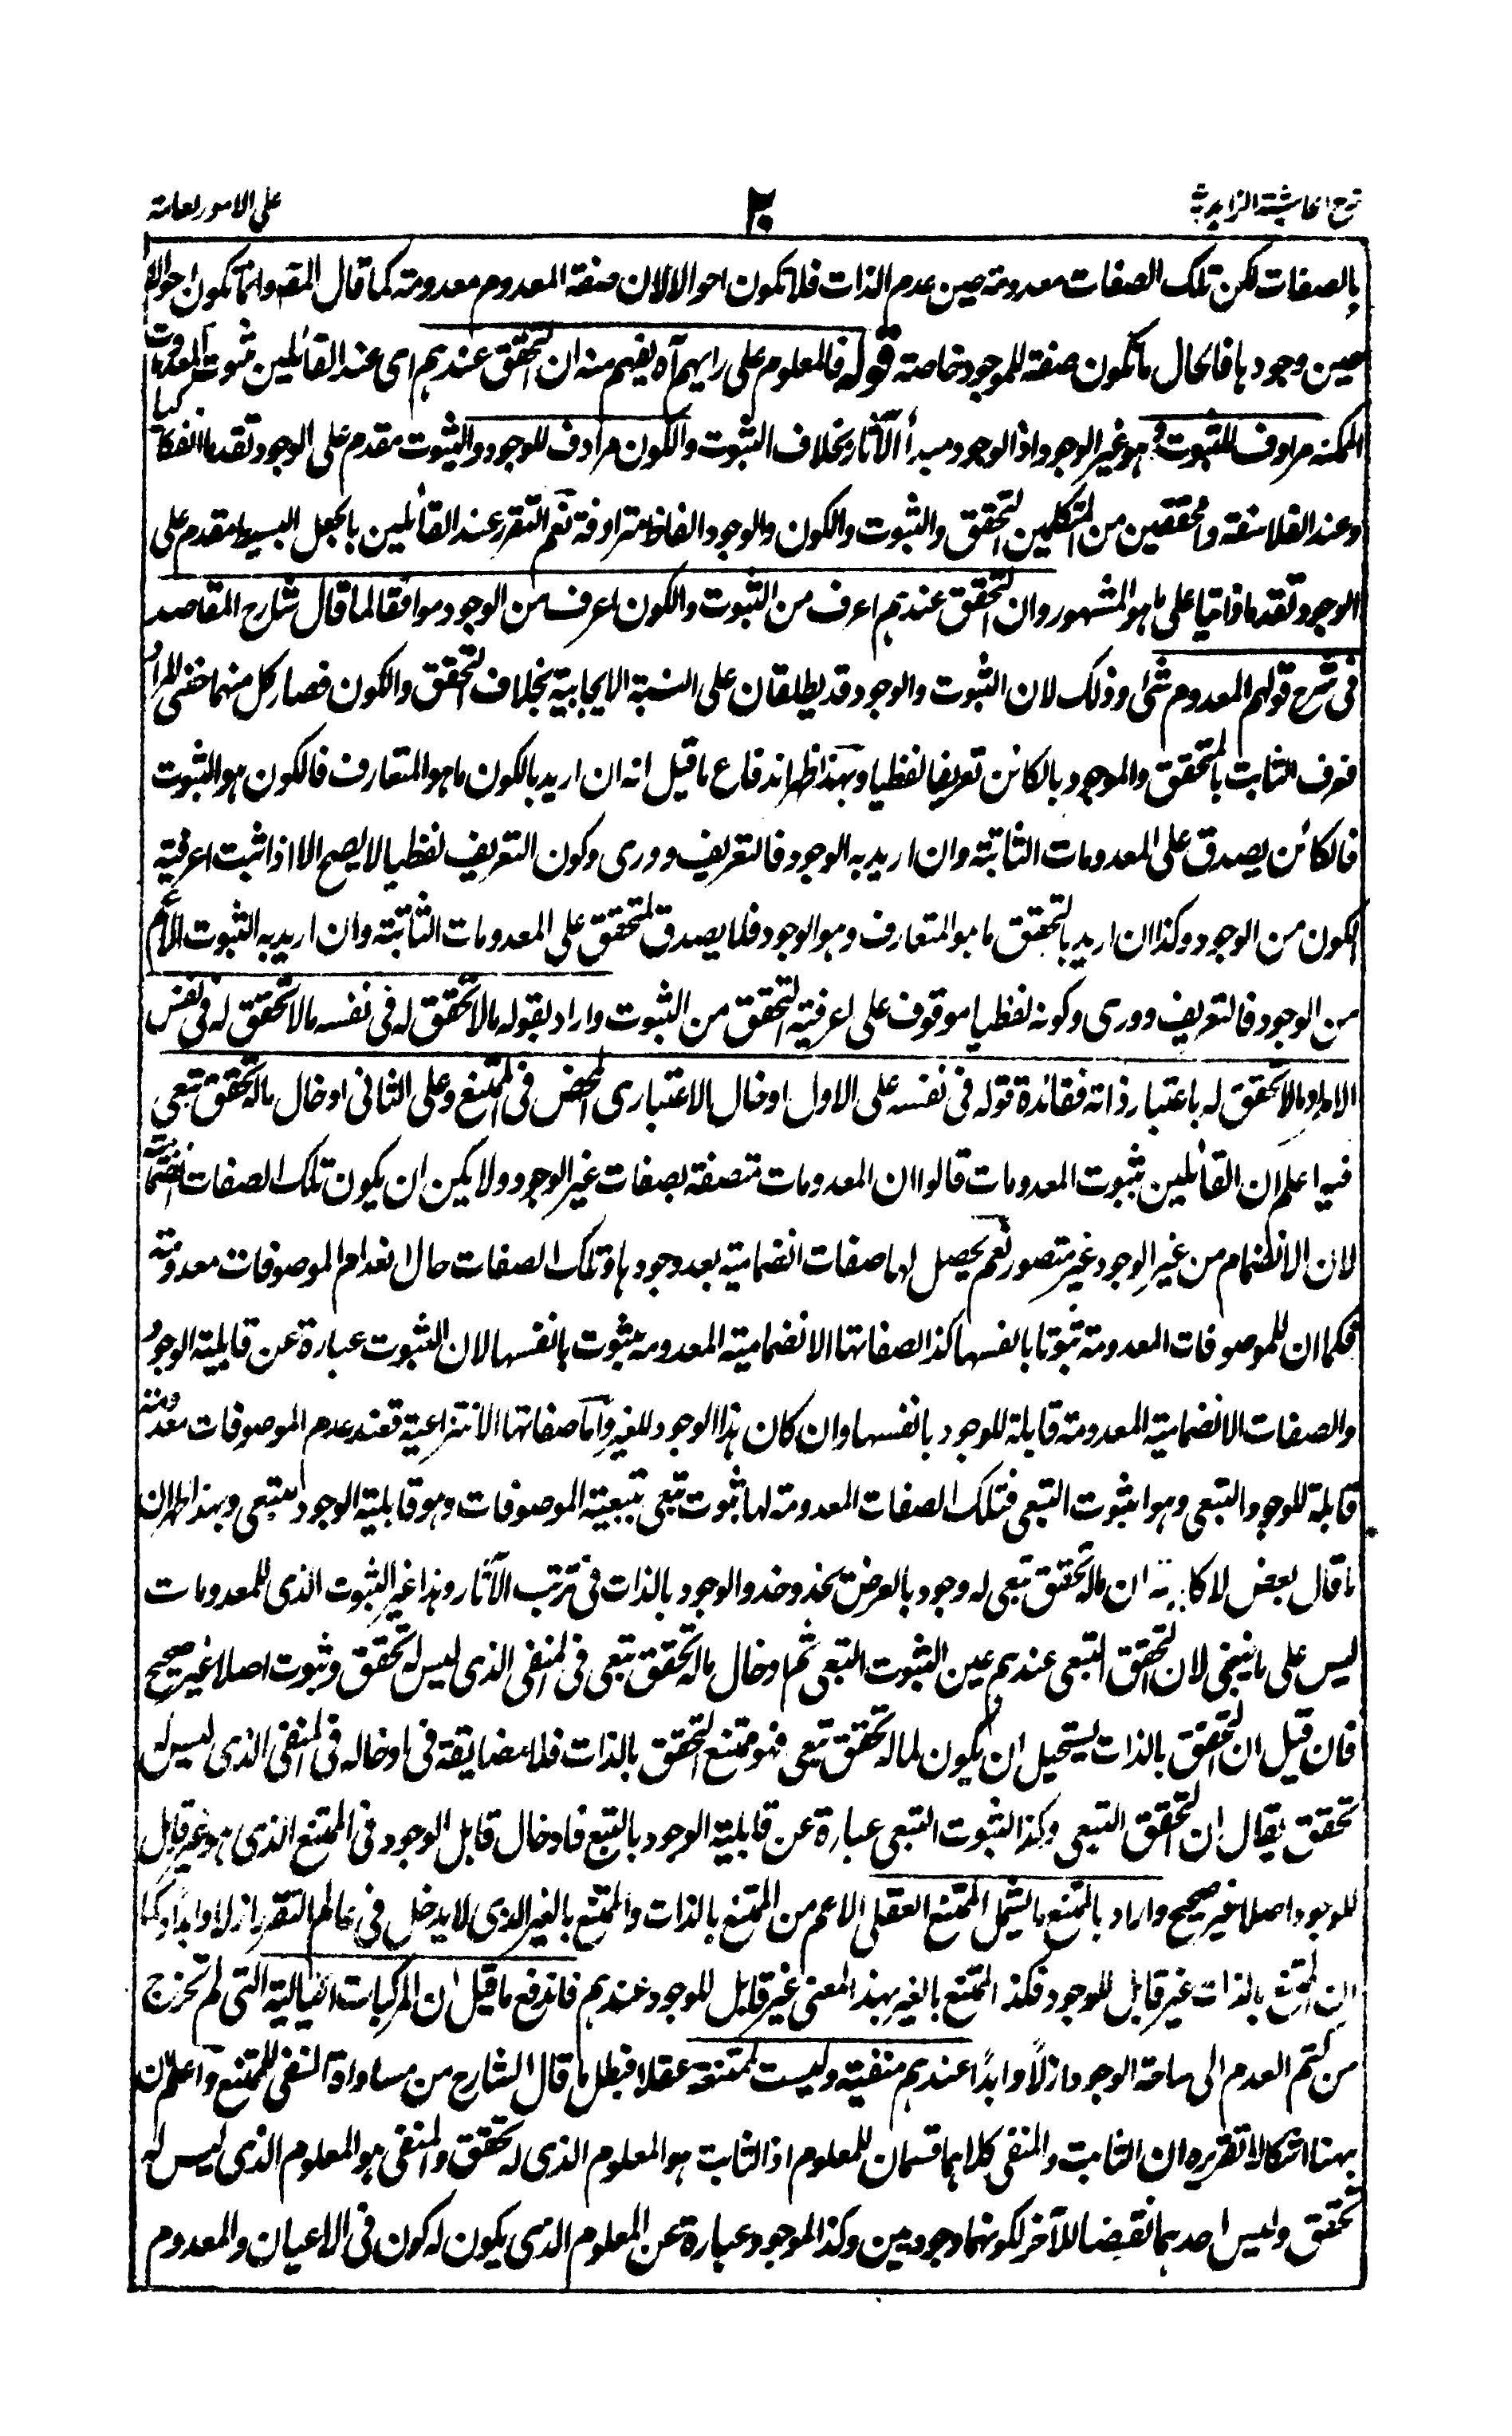 شرح الحاشية الزاهدية
٣٠
على الامور العامة
بالصفات لكن تلك الصفات معدومة حين عدم الذات فلا تكون احوالا لان صفة المعدوم معدومة كما قال المقه وانما تكون احوالا
حين وجودها فالحال ما تكون صفة للموجود خاصة قوله فالمعلوم على رايهم آه يفهم منه ان التحقق عندهم اى عند القائلين بثبوت المعدومات
الممكنة مرادف للثبوت وهو غير الوجود اذ الوجود مبدأ الآثار بخلاف الثبوت والكون مرادف للوجود والثبوت مقدم على الوجود تقدما انفكاكيا
وعند الفلاسفة والمحققين من المتكلمين التحقق والثبوت والكون والوجود الفاظ مترادفة نعم التقرر عند القائلين بالجعل البسيط مقدم على
الوجود تقدما ذاتيا على ما هو المشهور وان التحقق عندهم اعرف من الثبوت والكون اعرف من الوجود موافقا لما قال شارح المقاصد
فى شرح قولهم المعدوم شئ وذلك لان الثبوت والوجود قد يطلقان على النسبة الايجابية بخلاف التحقق والكون فصار كل منهما خفى المراد
فعرف الثابت بالمتحقق والموجود بالكائن تعريفا لفظيا وبهذا ظهر اندفاع ما قيل انه ان اريد بالكون ما هو المتعارف فالكون هو الثبوت
فالكائن يصدق على المعدومات الثابتة وان اريد به الوجود فالتعريف دورى وكون التعريف لفظيا لا يصح الا اذا ثبت اعرفية
الكون من الوجود وكذا ان اريد بالتحقق ما هو المتعارف وهو الوجود فلا يصدق المتحقق على المعدومات الثابتة وان اريد به الثبوت الاعم
من الوجود فالتعريف دورى وكونه لفظيا موقوف على اعرفية التحقق من الثبوت واراد بقوله ما لا تحقق له فى نفسه ما لا تحقق له فى نفس
الامر او ما لا تحقق له باعتبار ذاته ففائدة قوله فى نفسه على الاول ادخال الاعتبارى المحض فى الممتنع وعلى الثانى ادخال ما له تحقق تبعى
فيه اعلم ان القائلين بثبوت المعدومات قالوا ان المعدومات متصفة بصفات غير الوجود ولا يمكن ان يكون تلك الصفات انضمامية
لان الانضمام من غير الوجود غير متصور نعم يحصل لها صفات انضمامية بعد وجودها وتلك الصفات حال انعدام الموصوفات معدومة
فكما ان للموصوفات المعدومة ثبوتا بانفسها كذا لصفاتها الانضمامية المعدومة ثبوت بانفسها لان الثبوت عبارة عن قابلية الوجود
والصفات الانضمامية المعدومة قابلة للوجود بانفسها وان كان هذا الوجود للغير واما صفاتها الانتزاعية فعند عدم الموصوفات معدومة
قابلة للوجود التبعى وهو الثبوت التبعى فتلك الصفات المعدومة لها ثبوت تبعى بتبعية الموصوفات وهو قابلية الوجود التبعى وبهذا ظهر ان
ما قال بعض الاكابر ان ما له تحقق تبعى له وجود بالعرض يحذو حذو الوجود بالذات فى ترتب الآثار وهذا غير الثبوت الذى للمعدومات
ليس على ما ينبغى لان التحقق التبعى عندهم عين الثبوت التبعى ثم ادخال ما له تحقق تبعى فى المنفى الذى ليس له تحقق وثبوت اصلا غير صحيح
فان قيل ان التحقق بالذات يستحيل ان يكون لما له تحقق تبعى فهو ممتنع التحقق بالذات فلا مضايقة فى ادخاله فى المنفى الذى ليس له
تحقق يقال ان التحقق التبعى وكذا الثبوت التبعى عبارة عن قابلية الوجود بالتبع فادخال قابل الوجود فى الممتنع الذى هو غير قابل
للوجود اصلا غير صحيح واراد بالممتنع ما يشمل الممتنع العقلى الاعم من الممتنع بالذات والممتنع بالغير الذى لا يدخل فى عالم التقرر ازلا وابدا وكما
ان الممتنع بالذات غير قابل للوجود فكذا الممتنع بالغير بهذا المعنى غير قابل للوجود عندهم فاندفع ما قيل ان المركبات الخيالية التى لم تخرج
من كتم العدم الى ساحة الوجود ازلاً وابداً عندهم منفية وليست ممتنعة عقلا فبطل ما قال الشارح من مساواة المنفى للممتنع واعلم ان
ههنا اشكالا تقريره ان الثابت والمنفى كلاهما قسمان للمعلوم اذ الثابت هو المعلوم الذى له تحقق والمنفى هو المعلوم الذى ليس له
تحقق وليس احدهما نقيضا للآخر لكونهما وجوديين وكذا الموجود عبارة عن المعلوم الذى يكون له كون فى الاعيان والمعدوم